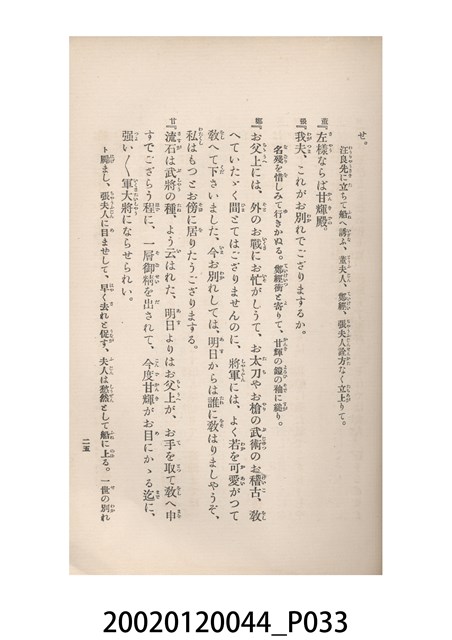 せ。
汪良先に立ちて船へ誘ふ、董夫人、鄭經、張夫人詮方なく立上りて。
董『左樣ならば甘輝殿。
張『我夫、これがお別れでござりまするか。
名殘を惜しみて行きかぬる。鄭經衝と寄りて、甘輝の鎧の袖に縋り。
鄭『お父上には、外のお戰にお忙がしうて、お太刀やお槍の武術のお稽古、敎
へていたゞく間とてはござりませんのに、將軍には、よく若を可愛がつて
敎へて下さいました、今お別れしては、明日からは誰に敎はりましやうぞ、
私はもつとお傍に居りたうござりまする。
甘『流石は武將の種、よう云はれた、明日よりはお父上が、お手を取て敎へ申
すでござらう程に、一層御精を出されて、今度甘輝がお目にかゝる迄に、
强い〱軍大將にならせられい。
ト勵まし、張夫人に目ませして、早く去れと促す、夫人は愁然として船に上る。一世の別れ
二五
20020120044_P033